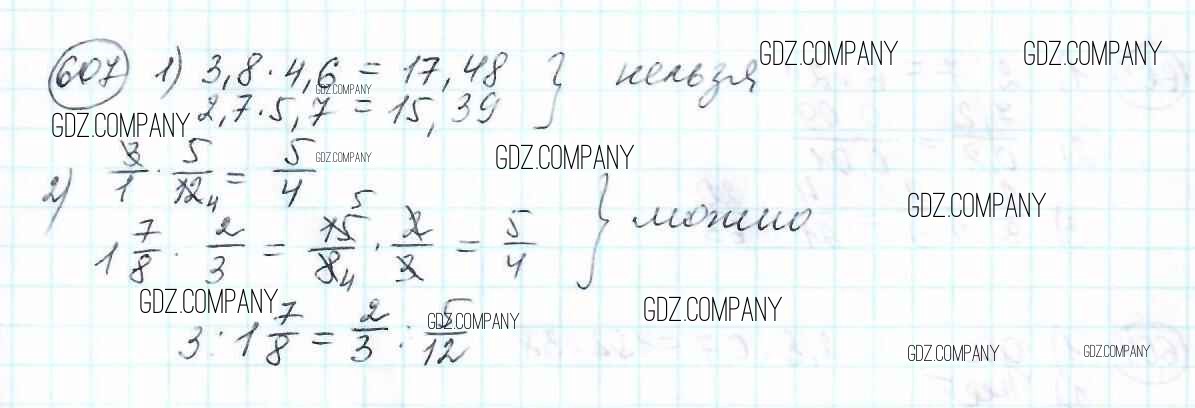 607 1) 3,8 · 4,6 = 17,48 } нельзя
2,7 · 5,7 = 15,39
2) 3/1 · 5/12 4 = 5/4
1 7/8 · 2/3 = 15 5/8 4 · 2/3 = 5/4 } можно
3 : 1 7/8 = 2/3 : 5/12
GDZ.COMPANY
GDZ.COMPANY
GDZ.COMPANY
GDZ.COMPANY
GDZ.COMPANY
GDZ.COMPANY
GDZ.COMPANY
GDZ.COMPANY
GDZ.COMPANY
GDZ.COMPANY
GDZ.COMPANY
GDZ.COMPANY